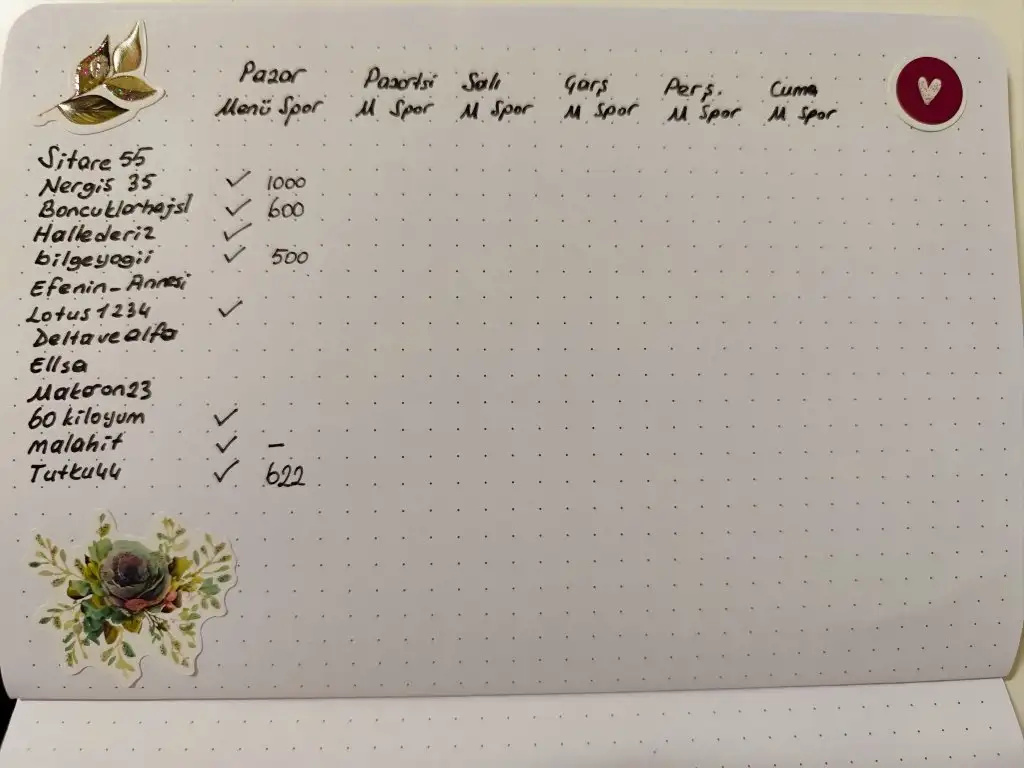 Pazar Pazartsi Salı Çarş Perş. Cuma
Menü Spor M Spor M Spor M Spor M Spor M Spor
Sitare 55
Nergis 35 ✓ 1000
Boncuklarhajsl ✓ 600
Hallederiz ✓
bilgeyogii ✓ 500
Efenin-Annesi
Lotus1234 ✓
Deltavealfa
Ellsa
Makaron23
60 kiloyum ✓
malahit ✓ –
Tutku44 ✓ 622